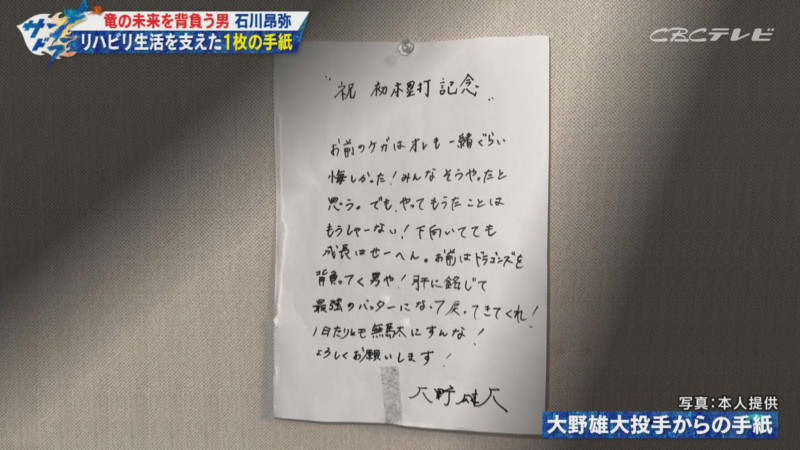 サンドラ
竜の未来を背負う男 石川昂弥
リハビリ生活を支えた1枚の手紙
CBCテレビ
"祝 初本塁打 記念"
お前のケガはオレも一緒ぐらい
悔しかった!みんなそうやったと
思う。でも、やってもうたことは
もうしゃーない!下向いてても
成長はせーへん。お前はドラゴンズを
背負ってく男や!肝に銘じて
最強のバッターになって戻ってきてくれ!
1日たりとも無駄にすんな!
よろしくお願いします!
大野雄大
写真:本人提供
大野雄大投手からの手紙